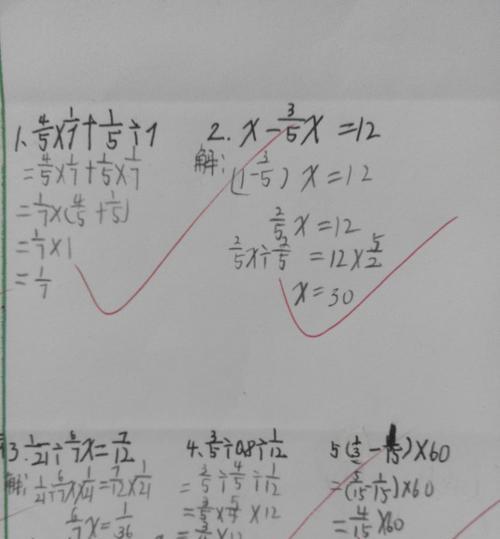 1. 4/5×1/7+1/5÷7
=4/5×1/7+1/5×1/7
=1/7×(4/5+1/5)
=1/7×1
=1/7
2. x-3/5x=12
解:
(1-3/5)x=12
2/5x=12
2/5x÷2/5=12×5/2
x=30
3. 1/21÷6/7x=7/12
解: 1/21÷6/7x×1/21=7/12×1/21
6/7x=1/36
4. 3/5÷0.8÷1/12
=3/5÷4/5÷1/12
=3/5×5/4×12
5 (1/3-1/15)×60
=(5/15-1/15)×60
=4/15×60